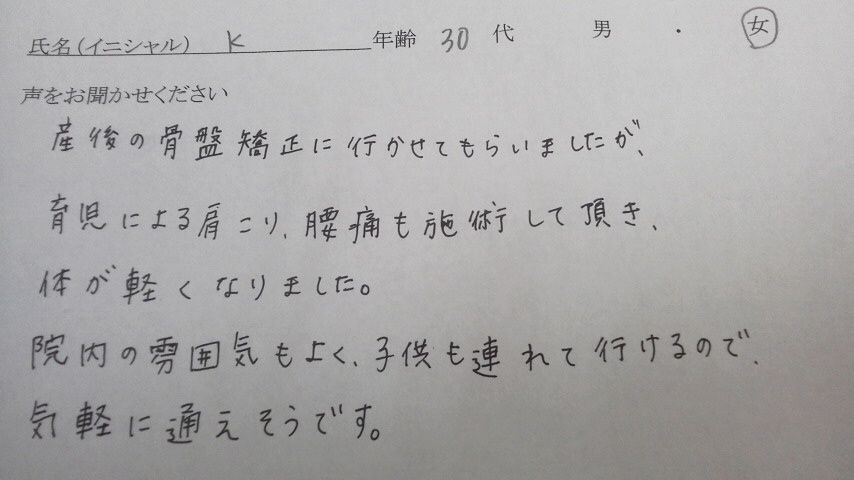 氏名（イニシャル） K 年齢 30 代 男 ・ 女
声をお聞かせください
産後の骨盤矯正に行かせてもらいましたが、
育児による肩こり、腰痛も施術して頂き、
体が軽くなりました。
院内の雰囲気もよく、子供も連れて行けるので、
気軽に通えそうです。